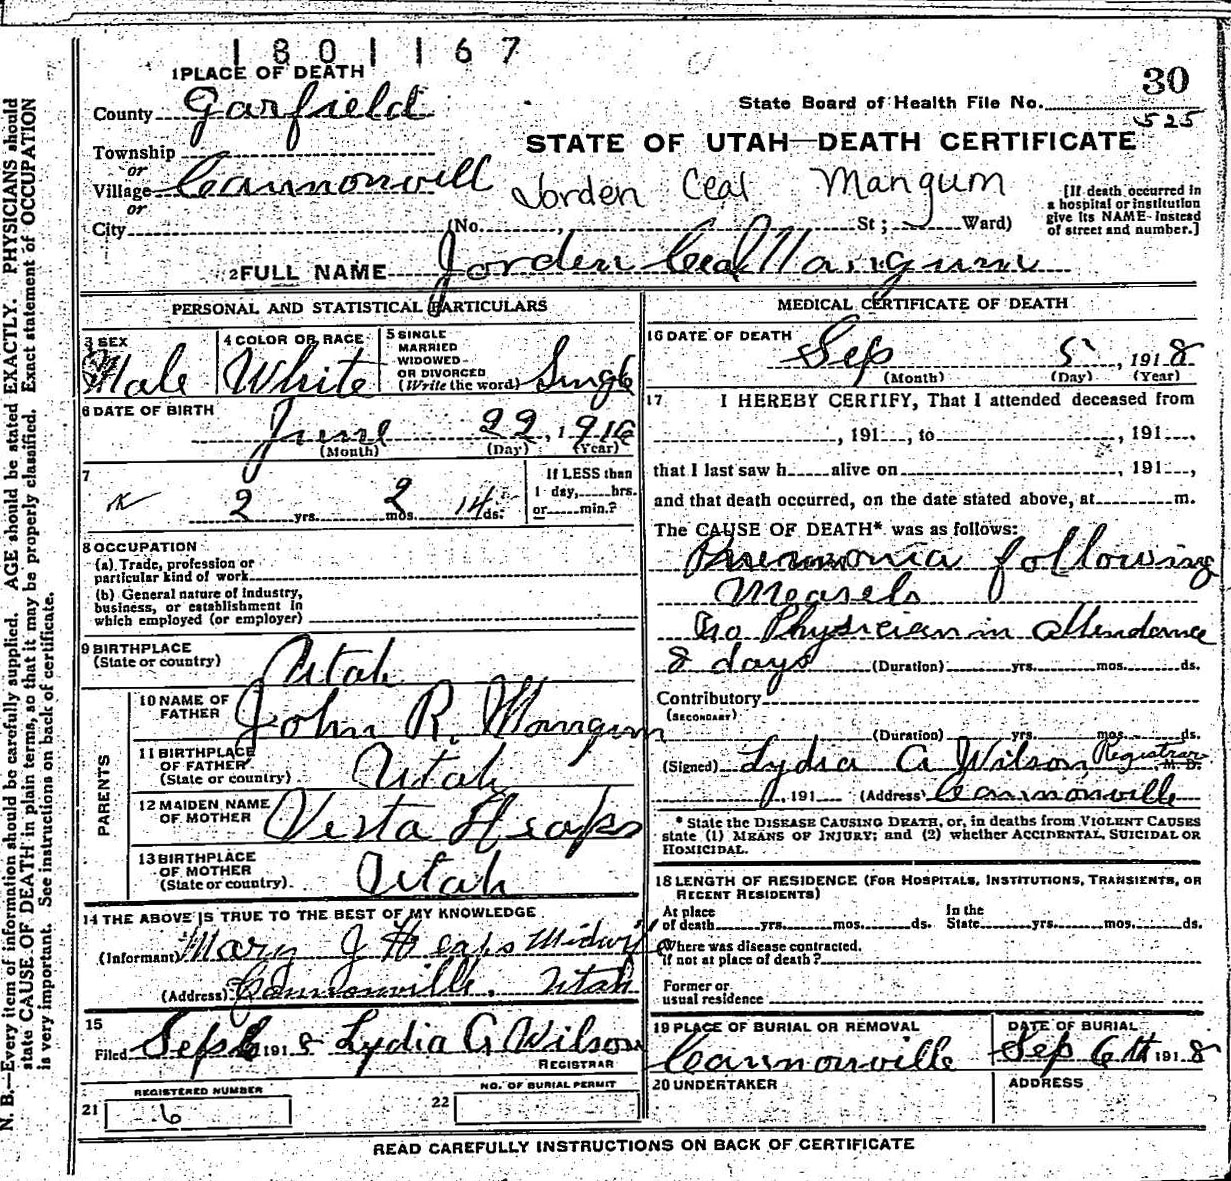 1801167
30
1 PLACE OF DEATH
County Garfield
State Board of Health File No. 525
Township
or
Village Cannonvill
or
City
STATE OF UTAH—DEATH CERTIFICATE
Jorden Ceal Mangum
(No. St; Ward)
[If death occurred in
a hospital or institution
give its NAME instead
of street and number.]
2 FULL NAME Jorden Ceal Mangum
PERSONAL AND STATISTICAL PARTICULARS
3 SEX
Male
4 COLOR OR RACE
White
5 SINGLE
MARRIED
WIDOWED
OR DIVORCED
(Write the word) Single
6 DATE OF BIRTH
June 22, 1916
(Month) (Day) (Year)
7
2 yrs. 2 mos. 14 ds.
If LESS than
1 day, hrs.
or min.?
8 OCCUPATION
(a) Trade, profession or
particular kind of work
(b) General nature of industry,
business, or establishment in
which employed (or employer)
9 BIRTHPLACE
(State or country) Utah
PARENTS
10 NAME OF
FATHER John R. Mangum
11 BIRTHPLACE
OF FATHER
(State or country) Utah
12 MAIDEN NAME
OF MOTHER Vesta Heaps
13 BIRTHPLACE
OF MOTHER
(State or country) Utah
14 THE ABOVE IS TRUE TO THE BEST OF MY KNOWLEDGE
(Informant) Mary J Heaps Midwife
(Address) Cannonville, Utah
15
Filed Sep 6 1918 Lydia A Wilson
REGISTRAR
REGISTERED NUMBER
21 6
NO. OF BURIAL PERMIT
22
MEDICAL CERTIFICATE OF DEATH
16 DATE OF DEATH
Sep 5, 1918
(Month) (Day) (Year)
17 I HEREBY CERTIFY, That I attended deceased from
, 191 , to , 191 ,
that I last saw h alive on , 191 ,
and that death occurred, on the date stated above, at m.
The CAUSE OF DEATH* was as follows:
Pneumonia following
Measels
No Physician in attendance
8 days (Duration) yrs. mos. ds.
Contributory
(SECONDARY)
(Duration) yrs. mos. ds.
(Signed) Lydia A Wilson, Registrar M. D.
, 191 (Address) Cannonville
* State the DISEASE CAUSING DEATH, or, in deaths from VIOLENT CAUSES
state (1) MEANS OF INJURY; and (2) whether ACCIDENTAL, SUICIDAL OR
HOMICIDAL.
18 LENGTH OF RESIDENCE (FOR HOSPITALS, INSTITUTIONS, TRANSIENTS, OR
RECENT RESIDENTS)
At place
of death yrs. mos. ds.
In the
State yrs. mos. ds.
Where was disease contracted.
if not at place of death?
Former or
usual residence
19 PLACE OF BURIAL OR REMOVAL
Cannonville
DATE OF BURIAL
Sep 6th 1918
20 UNDERTAKER
ADDRESS
READ CAREFULLY INSTRUCTIONS ON BACK OF CERTIFICATE
N. B.—Every item of information should be carefully supplied. AGE should be stated EXACTLY. PHYSICIANS should
state CAUSE OF DEATH in plain terms, so that it may be properly classified. Exact statement of OCCUPATION
is very important. See instructions on back of certificate.